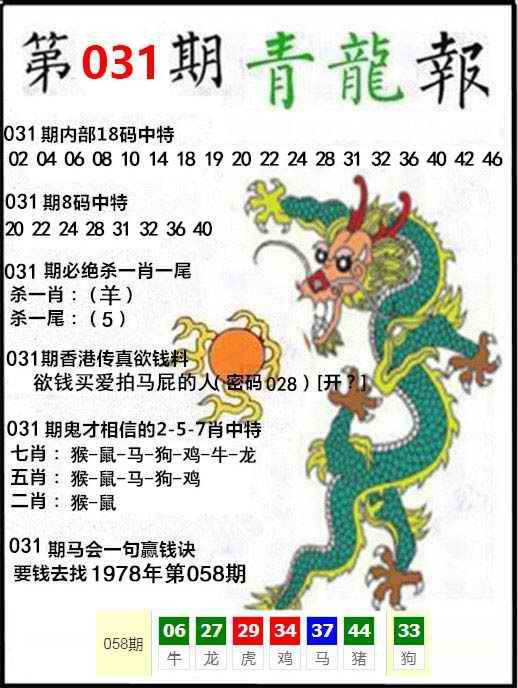 第031期青龍報
031期内部18码中特
02 04 06 08 10 14 18 19 20 22 24 28 31 32 36 40 42 46
031期8码中特
20 22 24 28 31 32 36 40
031 期必绝杀一肖一尾
杀一肖：（羊）
杀一尾：（5）
031期香港传真欲钱料
欲钱买爱拍马屁的人（密码028）[开？]
031期鬼才相信的2-5-7肖中特
七肖：猴-鼠-马-狗-鸡-牛-龙
五肖：猴-鼠-马-狗-鸡
二肖：猴-鼠
031期马会一句赢钱诀
要钱去找1978年第058期
058期 06 27 29 34 37 44 33
牛 龙 虎 鸡 马 猪 狗